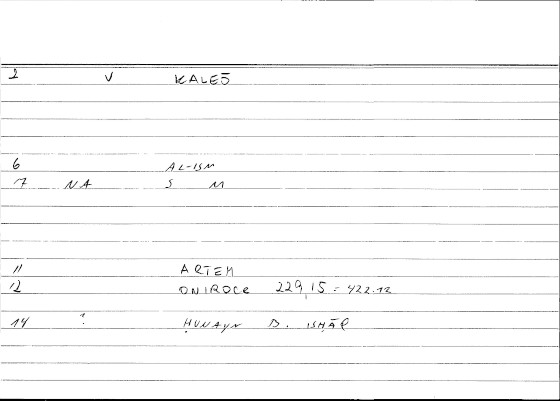 2 V KALEŠ
6 AL-ISM
7 NA S M
11 ARTEM
12 ONIROCR 229,15 = 422.12
14 ? ḤUNAYN B. ISḤĀQ